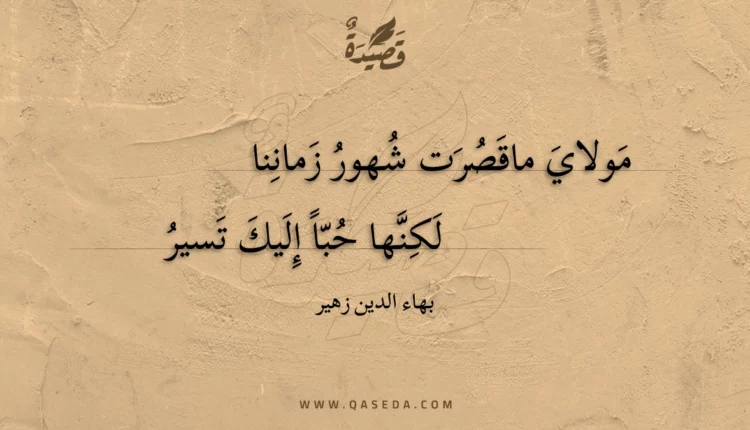 قَصِيدَةٌ
مَولايَ ماقَصُرَت شُهورُ زَمانِنا
لَكِنَّها حُبّاً إِلَيكَ تَسيرُ
بهاء الدين زهير
WWW.QASEDA.COM